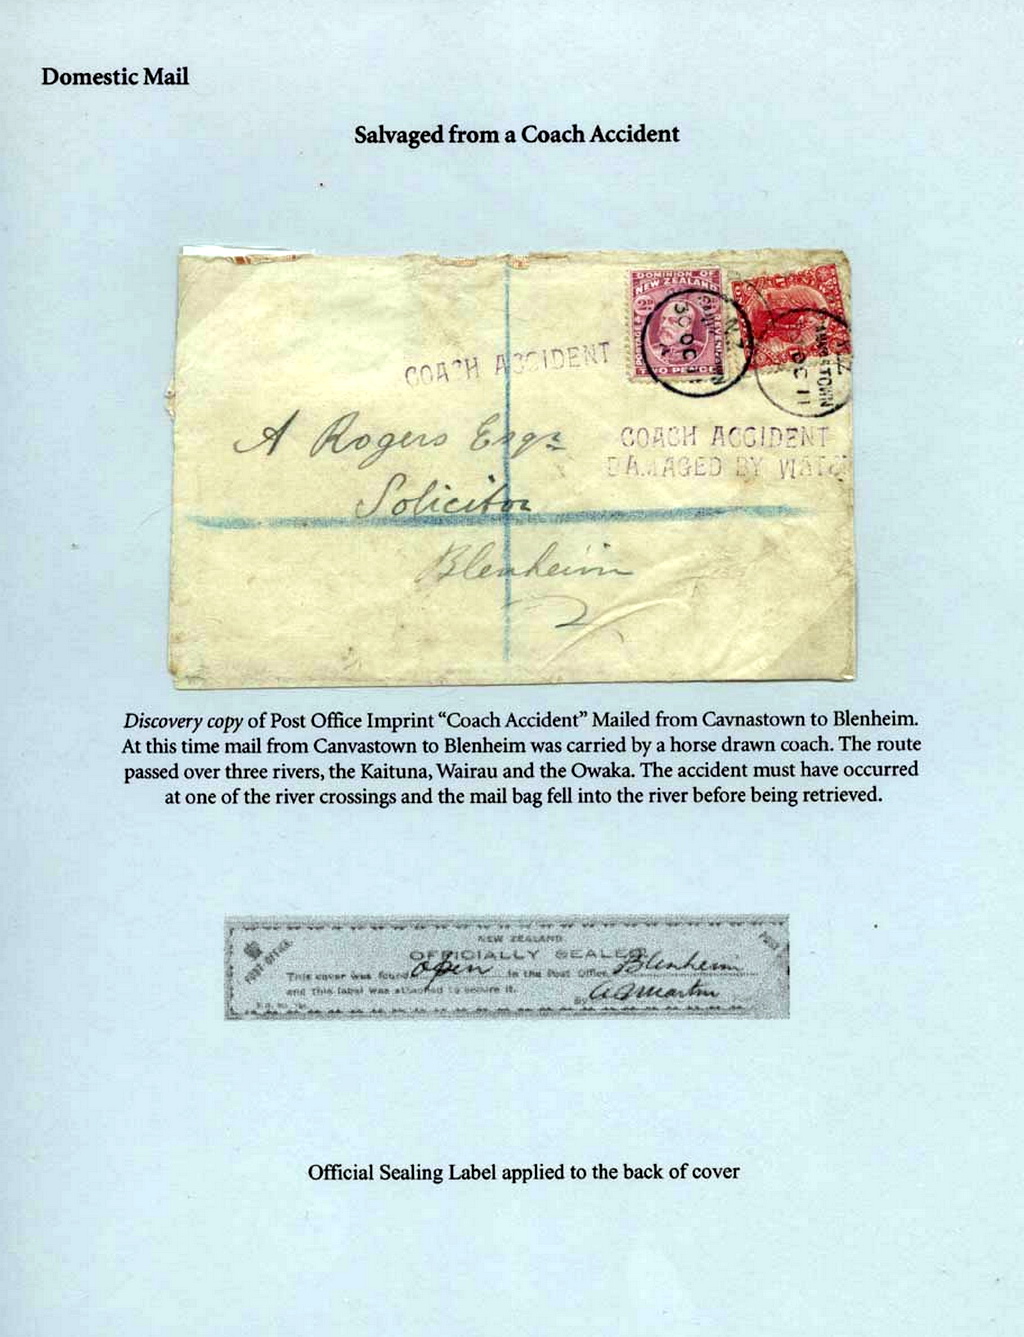 Domestic Mail
Salvaged from a Coach Accident
DOMINION OF
NEW ZEALAND
2D
POSTAGE &
TWO PENCE
N.Z
30 OC 11
OC 11
COACH ACCIDENT
COACH ACCIDENT
DAMAGED BY WATE
A Rogers Esqr
Solicitor
Blenheim
Discovery copy of Post Office Imprint “Coach Accident” Mailed from Cavnastown to Blenheim.
At this time mail from Canvastown to Blenheim was carried by a horse drawn coach. The route
passed over three rivers, the Kaituna, Wairau and the Owaka. The accident must have occurred
at one of the river crossings and the mail bag fell into the river before being retrieved.
NEW ZEALAND
POST OFFICE
OFFICIALLY SEALED
POST
This cover was found open in the Post Office, Blenheim
and this label was attached to secure it.
By A S Martin
Official Sealing Label applied to the back of cover